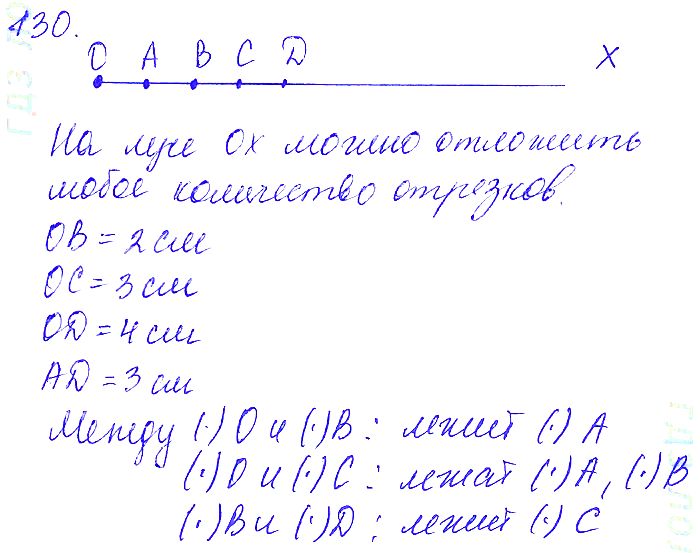 130.
O A B C D X
На луче Ох можно отложить
любое количество отрезков.
OB = 2 см
OC = 3 см
OD = 4 см
AD = 3 см
Между (·) O и (·) B : лежит (·) A
(·) O и (·) C : лежат (·) A, (·) B
(·) B и (·) D : лежит (·) C